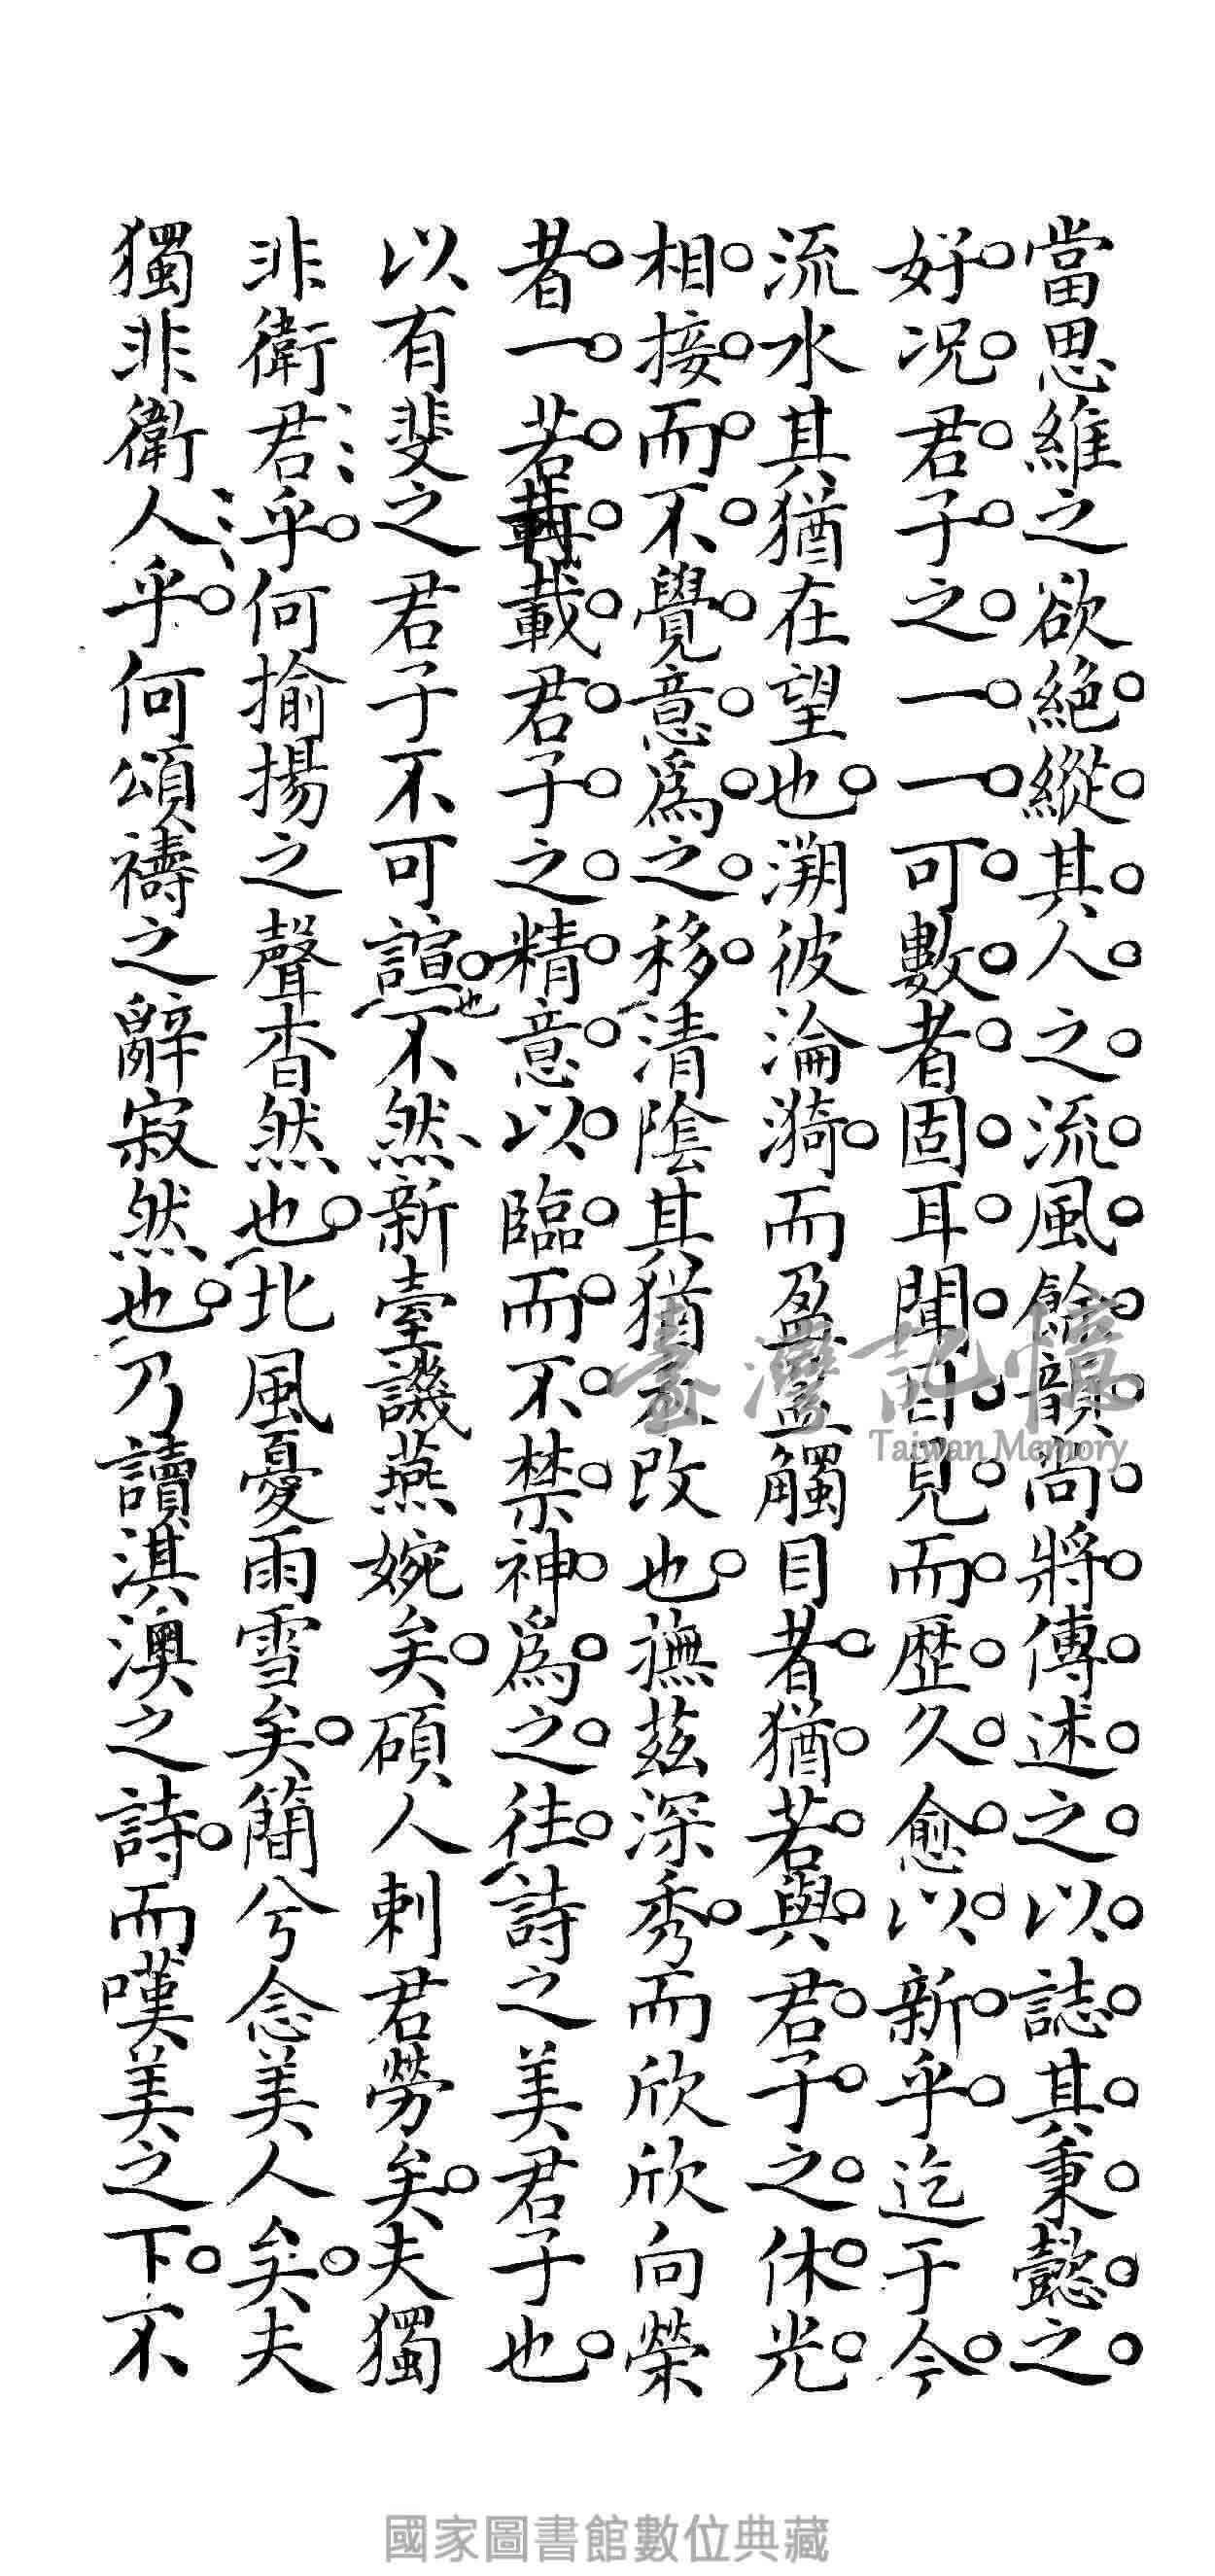 當思維之欲絕縱其人之流風餘韻尚將傳述之以誌其秉懿之
好况君子之一一可數者固耳聞目見而歷久愈以新乎迄于今
流水其猶在望也溯彼淪漪而盈盈觸目者猶若與君子之休光
相接而不覺意為之移清陰其猶未改也撫茲深秀而欣欣向榮
者一若載君子之精意以臨而不禁神為之往詩之美君子也
以有斐之君子不可諠也不然新臺譏燕婉矣碩人刺君勞矣夫獨
非衛君乎何揄揚之聲杳然也北風憂雨雪矣簡兮念美人矣夫
獨非衛人乎何頌禱之辭寂然也乃讀淇澳之詩而嘆美之下不
臺灣記憶
Taiwan Memory
國家圖書館數位典藏